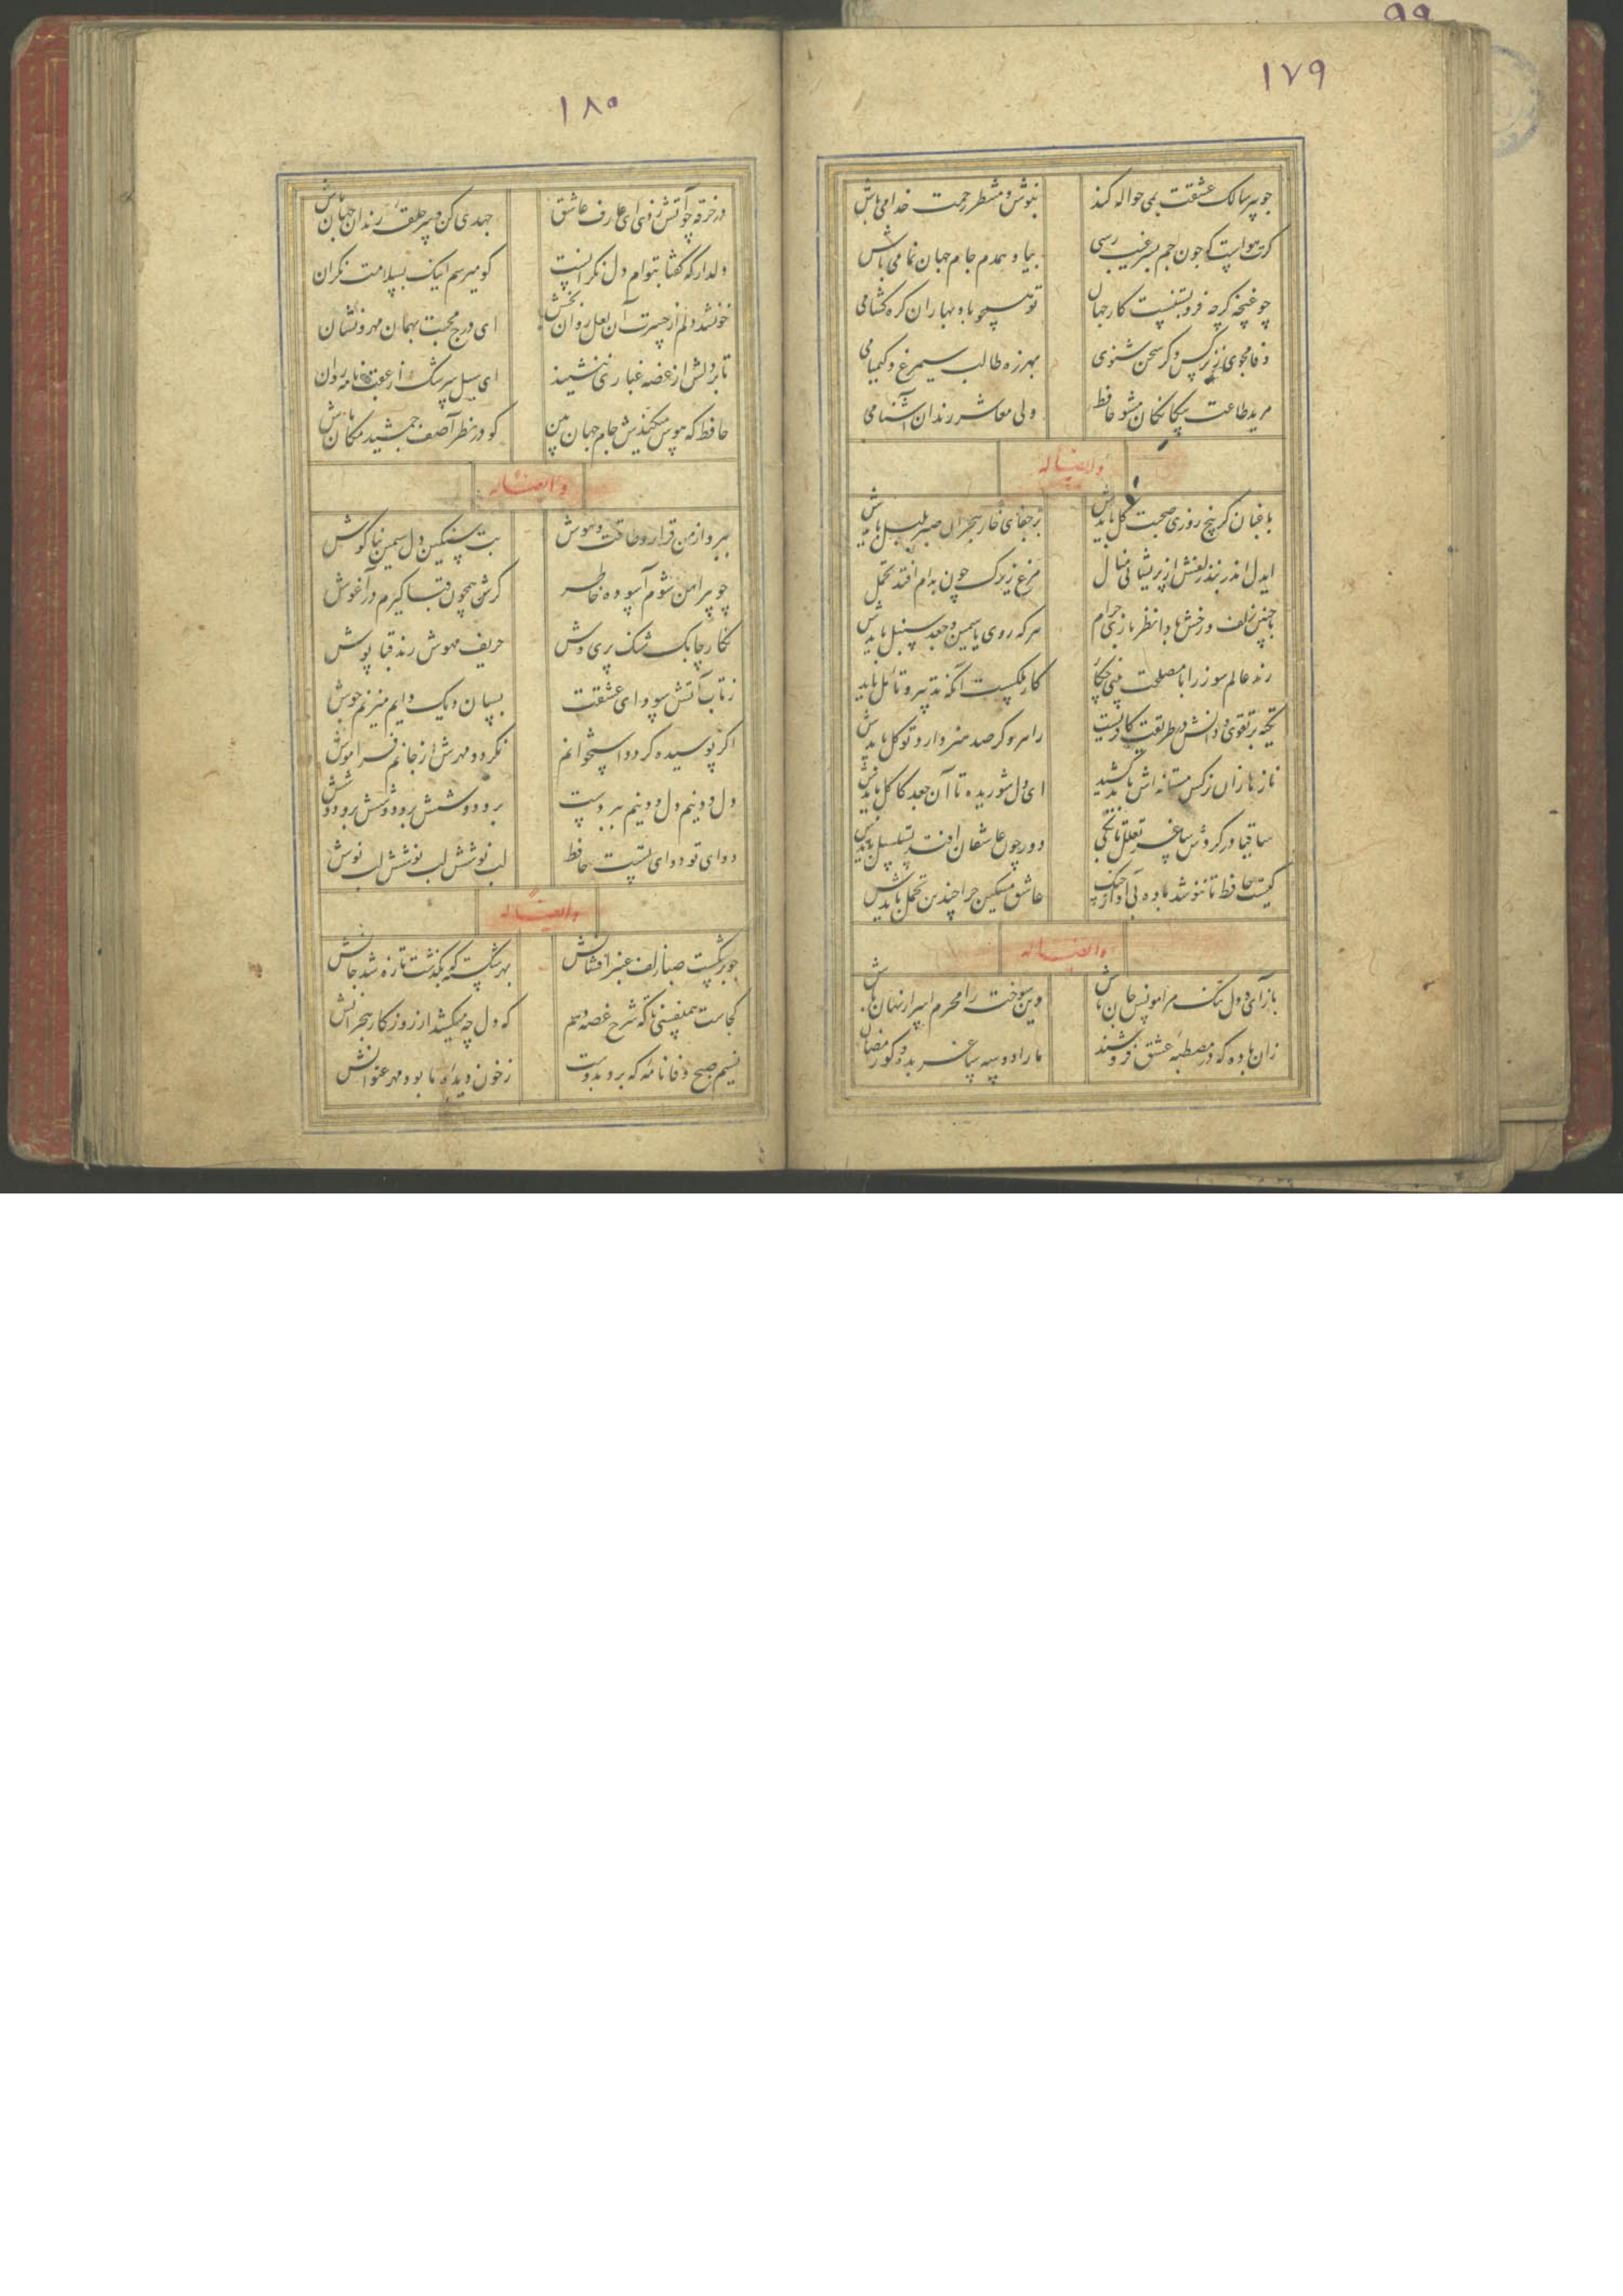 ۹۹
۱۷۹
جو پیر سالک عشقت بمی حواله کند بنوش و منتظر رحمت خدا می باش
کرت هواست که جون جم بسر غیب رسی بیا و همدم جام جهان نما می باش
چو غنچه کرچه فروبستیست کار جهان تو همچو باد بهاران کره کشا می
وفا مجوی ز کس ور سخن شنوی بهرزه طالب سیمرغ و کیمیا می
مرید طاعت بیکانکان مشو حافظ ولی معاشر رندان آشنا می
وله ایضا له
باغبان کر پنج روزی صحبت کل بایدش بر جفای خار هجران صبر بلبل بایدش
ایدل اندر بند زلفش از پریشانی منال مرغ زیرک چون بدام افتد تحمل
با چنین زلف و رخش بادا نظربازی حرام هر که روی یاسمین و جعد سنبل بایدش
رند عالم سوز را با مصلحت بینی چکار کار ملکست آنکه تدبیر و تامل باید
تکیه بر تقوی و دانش در طریقت کافریست راهرو کر صد هنر دارد توکل بایدش
ناز ها زان نرکس مستانه اش باید کشید ای دل شوریده تا آن جعد کاکل بایدش
ساقیا در کردش ساغر تعلل تا بکی دور چون با عاشقان افتد تسلسل بایدش
کیست حافظ تا ننوشد باده بی آواز چنک عاشق مسکین چرا چندین تحمل بایدش
وایضا له
بازآی و دل تنک مرا مونس جان باش وین سوخته را محرم اسرار نهان باش
زان باده که در مصطبه عشق فروشند ما را دو سه ساغر بده و کو رمضان
۱۸۰
در خرقه چو آتش زدی ای عارف عاشق جهدی کن و سر حلقه رندان جهان باش
دلدار که کفتا بتوام دل نکرانست کو میرسم اینک بسلامت نکران
خونشد دلم از حسرت آن لعل روان بخش ای درج محبت بهمان مهر و نشان
تا بر دلش از غصه غباری ننشیند ای سیل سرشک از عقب نامه روان
حافظ که هوس میکندش جام جهان بین کو در نظر آصف جمشید مکان باش
وایضا له
ببرد از من قرار و طاقت و هوش بت سنکین دل سیمین بناکوش
چو پیراهن شوم آسوده خاطر کرش همچون قبا کیرم در آغوش
نکار چابک شنک پری وش حریف مهوش رند قبا پوش
ز تاب آتش سودای عشقت بسان دیک دایم میزنم جوش
اکر پوسیده کردد استخوانم نکردد مهرش از جانم فراموش
دل و دینم دل و دینم ببردست بر و دوشش بر و دوشش بر و دوش
دوای تو دوای تست حافظ لب نوشش لب نوشش لب نوش
وایضا له
جو برشکست صبا زلف عنبر افشانش بهر شکسته که بکذشت تازه شد جانش
کجاست همنفسی تا که شرح غصه دهم که دل چه میکشد از روزکار هجرانش
نسیم صبح وفا نامه که برد بدوست ز خون دیده ما بود مهر عنوانش